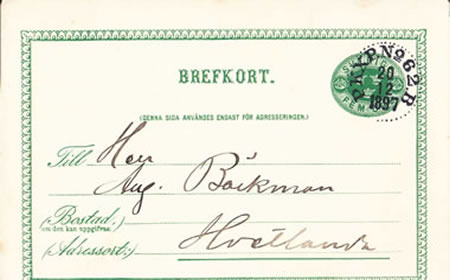 BREFKORT.
SVERIGE
FEM
PKXP.No 62.B
20
12
1897
(DENNA SIDA ANVÄNDES ENDAST FÖR ADRESSERINGEN.)
Till Herr
Aug. Bäckman
(Bostad.)
om den kan uppgifvas:
(Adressort:) Hvetlanda